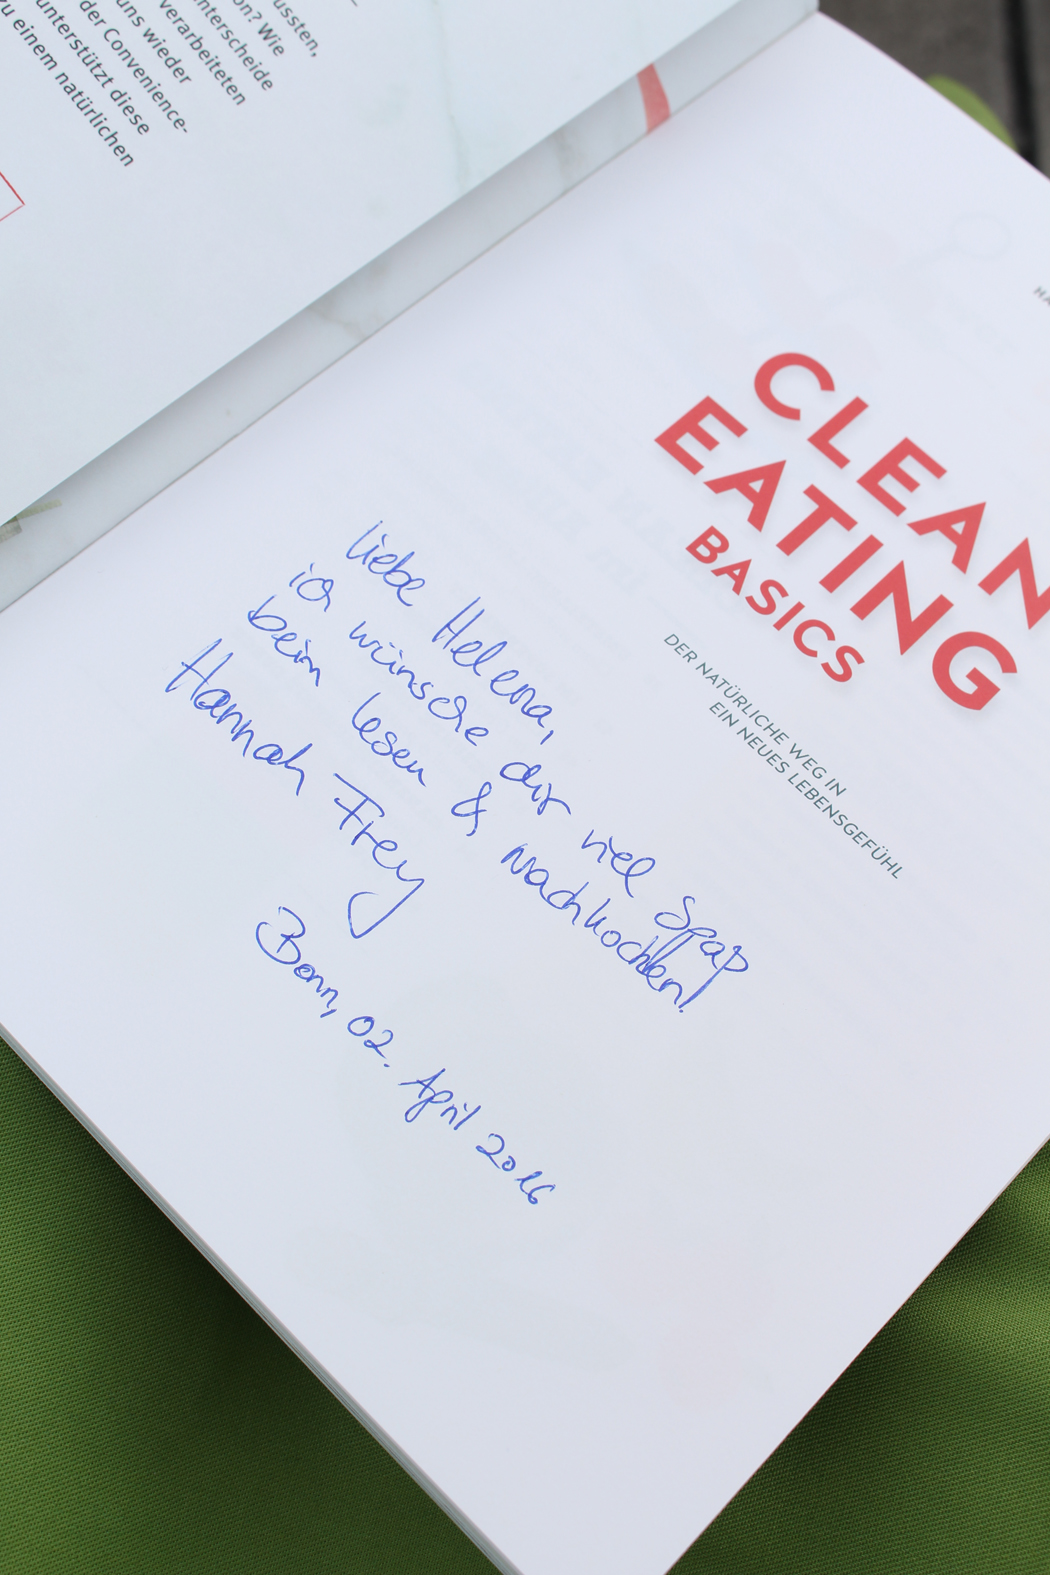 ussten,
on? Wie
nterscheide
verarbeiteten
uns wieder
der Convenience-
unterstützt diese
zu einem natürlichen
HA
CLEAN
EATING
BASICS
DER NATÜRLICHE WEG IN
EIN NEUES LEBENSGEFÜHL
Liebe Helena,
ich wünsche dir viel Spaß
beim lesen & nachkochen!
Hannah Frey
Bonn, 02. April 2016